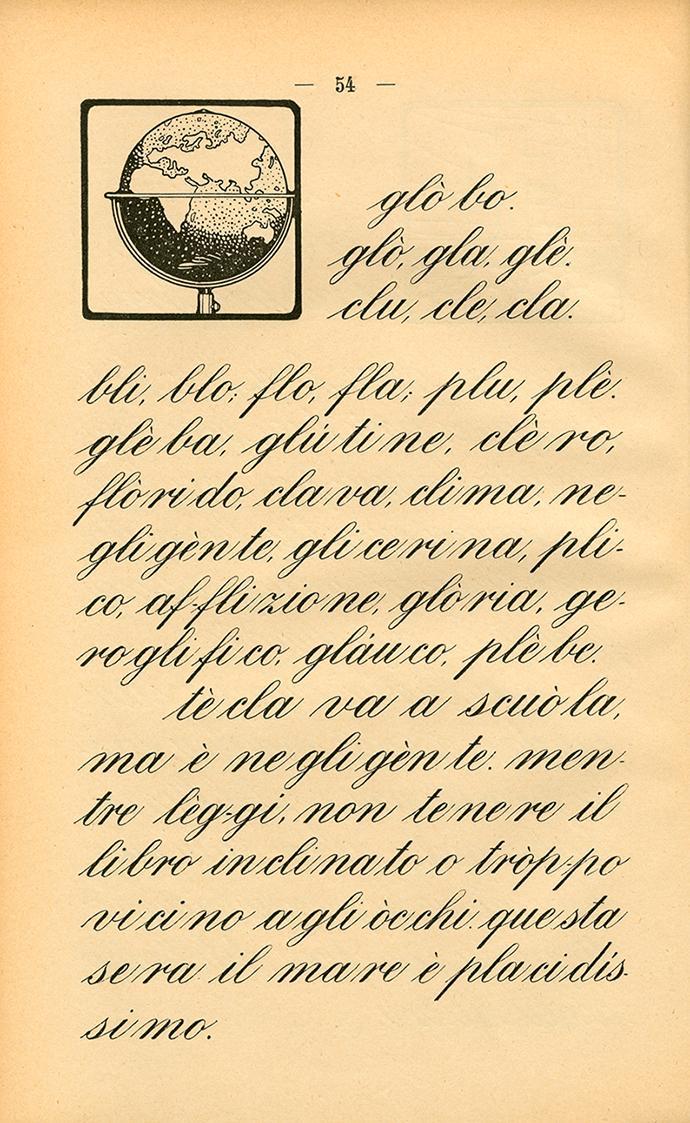 — 54 —
glò bo.
glò, gla, glè.
clu, cle, cla.
bli, blo; flo, fla; plu, plè.
glè ba, glú ti ne, clè ro,
flò ri do, cla va, cli ma, ne-
gli gèn te, gli ce ri na, pli-
co, af-fli zio ne, glò ria, ge-
ro gli fi co, gláu co, plè be.
tè cla va a scuò la,
ma è ne gli gèn te. men-
tre lèg-gi, non te ne re il
li bro in cli na to o tròp-po
vi ci no a gli òc chi. que sta
se ra il ma re è pla ci dís-
si mo.